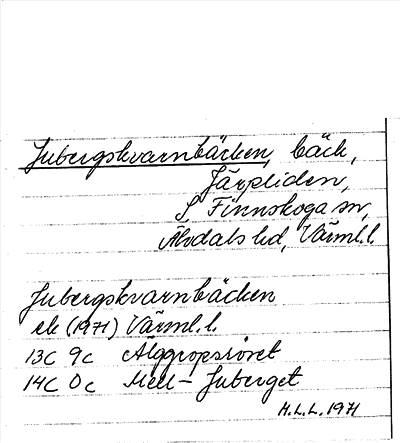 Jubergskvarnbäcken, bäck,
Järpliden,
S Finnskoga sn,
Älvdals hd, Värml.l.
Jubergskvarnbäcken
ek (1971) Värml.l.
13C 9c Älggropsröret
14C 0c Mell-Juberget
H.L.L. 1971